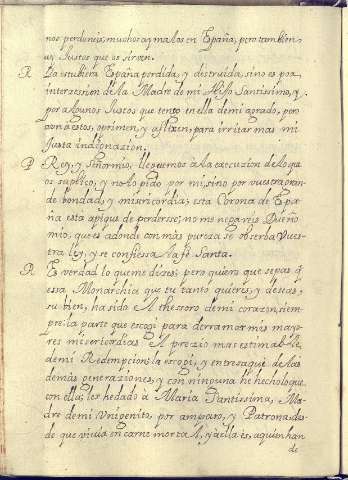 nos perdoneis; muchos ay malos en España, pero tambien
ay Justos que os sirven.
R Ya estubiera España perdida, y destruida, sino es por
interzession de la Madre de mi Hijo Santissimo, y
por algunos Justos que tento en ella de mi agrado, pero
con aestos, oprimen, y aflixen, para irritar mas mi
Justa indignazion.
P Rey, y Señor mio, lleguemos a la execuzion de lo que
os suplico, y no lo pido por mi, sino por vuestra gran
de bondad, y misericordia; esta Corona de Espa
ña esta apique de perderse; no me negareis Dueño
mio, que es adonde con mas pureza se obserba Vues
tra ley, y se confiessa la fee Santa.
R Es verdad lo que me dizes; pero quiero que sepas q
essa Monarchia que tu tanto quieres, y deseas,
su bien, ha sido el thessoro de mi corazon, siem
pre; la parte que escogi para derramar mis mayo
res misericordias. A prezio mas estimable,
de mi Redempcion; la escogi, y entresaque de las
demàs generaziones, y con ninguna he hecho lo que
con ella; les he dado a Maria Santissima, Ma
dre de mi Unigenito, por amparo, y Patrona; des
de que viuia en carne mortal, y a ella es, a quien han
de